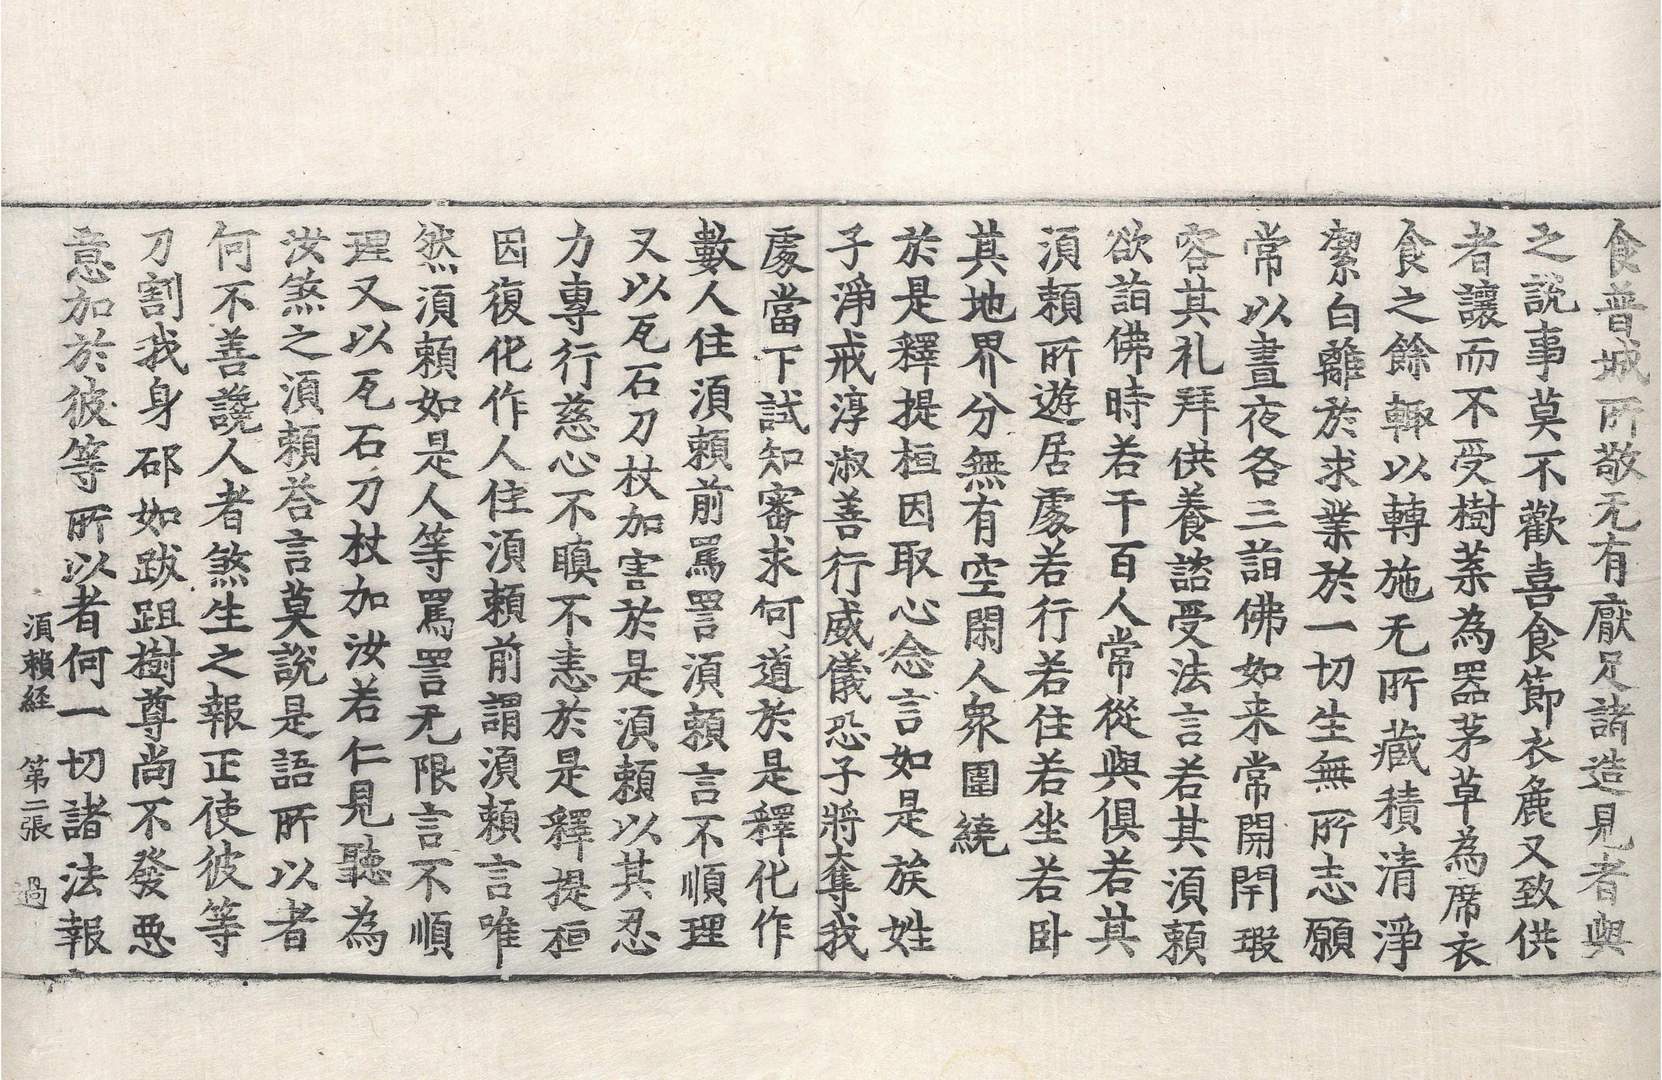 食普城所敬无有厭足諸造見者與
之說事莫不歡喜食節衣麁又致供
者讓而不受樹葉為器茅草為席衣
食之餘輒以轉施无所藏積清淨
潔白離於求業於一切生無所志願
常以晝夜各三詣佛如来常開閇瑕
容其礼拜供養諮受法言若其湏頼
欲詣佛時若干百人常從與俱若其
湏頼所遊居處若行若住若坐若卧
其地界分無有空閑人衆圍繞
於是釋提桓因取心念言如是族姓
子淨戒淳淑善行威儀恐子將奪我
處當下試知審求何道於是釋化作
數人住湏頼前罵詈湏頼言不順理
又以瓦石刀杖加害於是湏頼以其忍
力專行慈心不瞋不恚於是釋提桓
因復化作人住湏頼前謂湏頼言唯
然湏頼如是人等罵詈无限言不順
理又以瓦石刀杖加汝若仁見聽為
汝煞之湏頼荅言莫說是語所以者
何不善讒人者煞生之報正使彼等
刀割我身邵如跋跙樹尊尚不發惡
意加於彼等所以者何一切諸法報
湏頼経 第二張 過